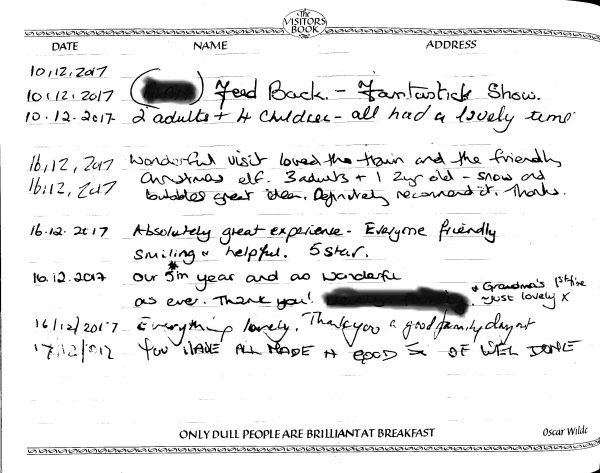 The
VISITORS
BOOK
DATE NAME ADDRESS
10/12/2017
10/12/2017 Feed Back. - Fantastick Show.
10.12.2017 2 adults + 4 children - all had a lovely time
16/12/2017 Wonderful visit loved the train and the friendly
16/12/2017 Christmas elf. 3 adults + 1 2yr old - snow and
bubbles great idea. Definitely recommend it. Thanks.
16.12.2017 Absolutely great experience. Everyone friendly
smiling & helpful. 5 star.
16.12.2017 Our 5th year and as wonderful
as ever. Thank you! + Grandma's 1st time
~ just lovely x
16/12/2017 Everything lovely. Thank you a good family day out
17/12/ YOU HAVE ALL MADE A GOOD OF WEL DONE
ONLY DULL PEOPLE ARE BRILLIANT AT BREAKFAST Oscar Wilde